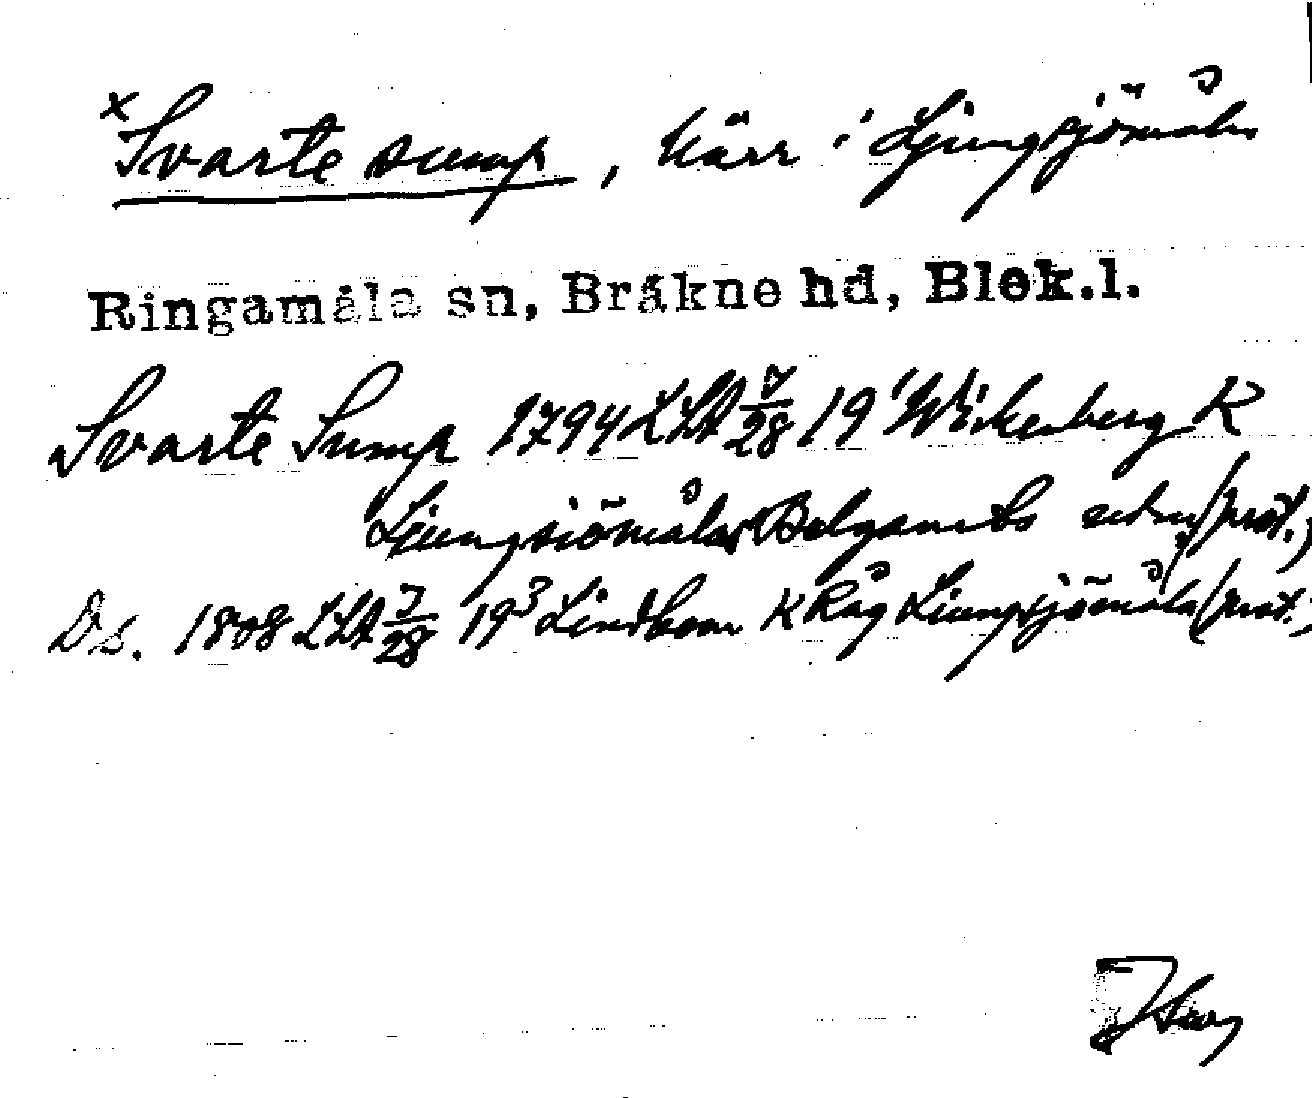 × Svarte sump, kärr i Ljungsjömåla
Ringamåla sn, Bräkne hd, Blek.l.
Svarte Sump 1794 LLA 7/28 19¹ Wikenberg K
Ljungsiömåla (prot.)
Ds. 1808 LLA 7/28 19³ Lindbom K Råg Liungsjömåla (prot.)